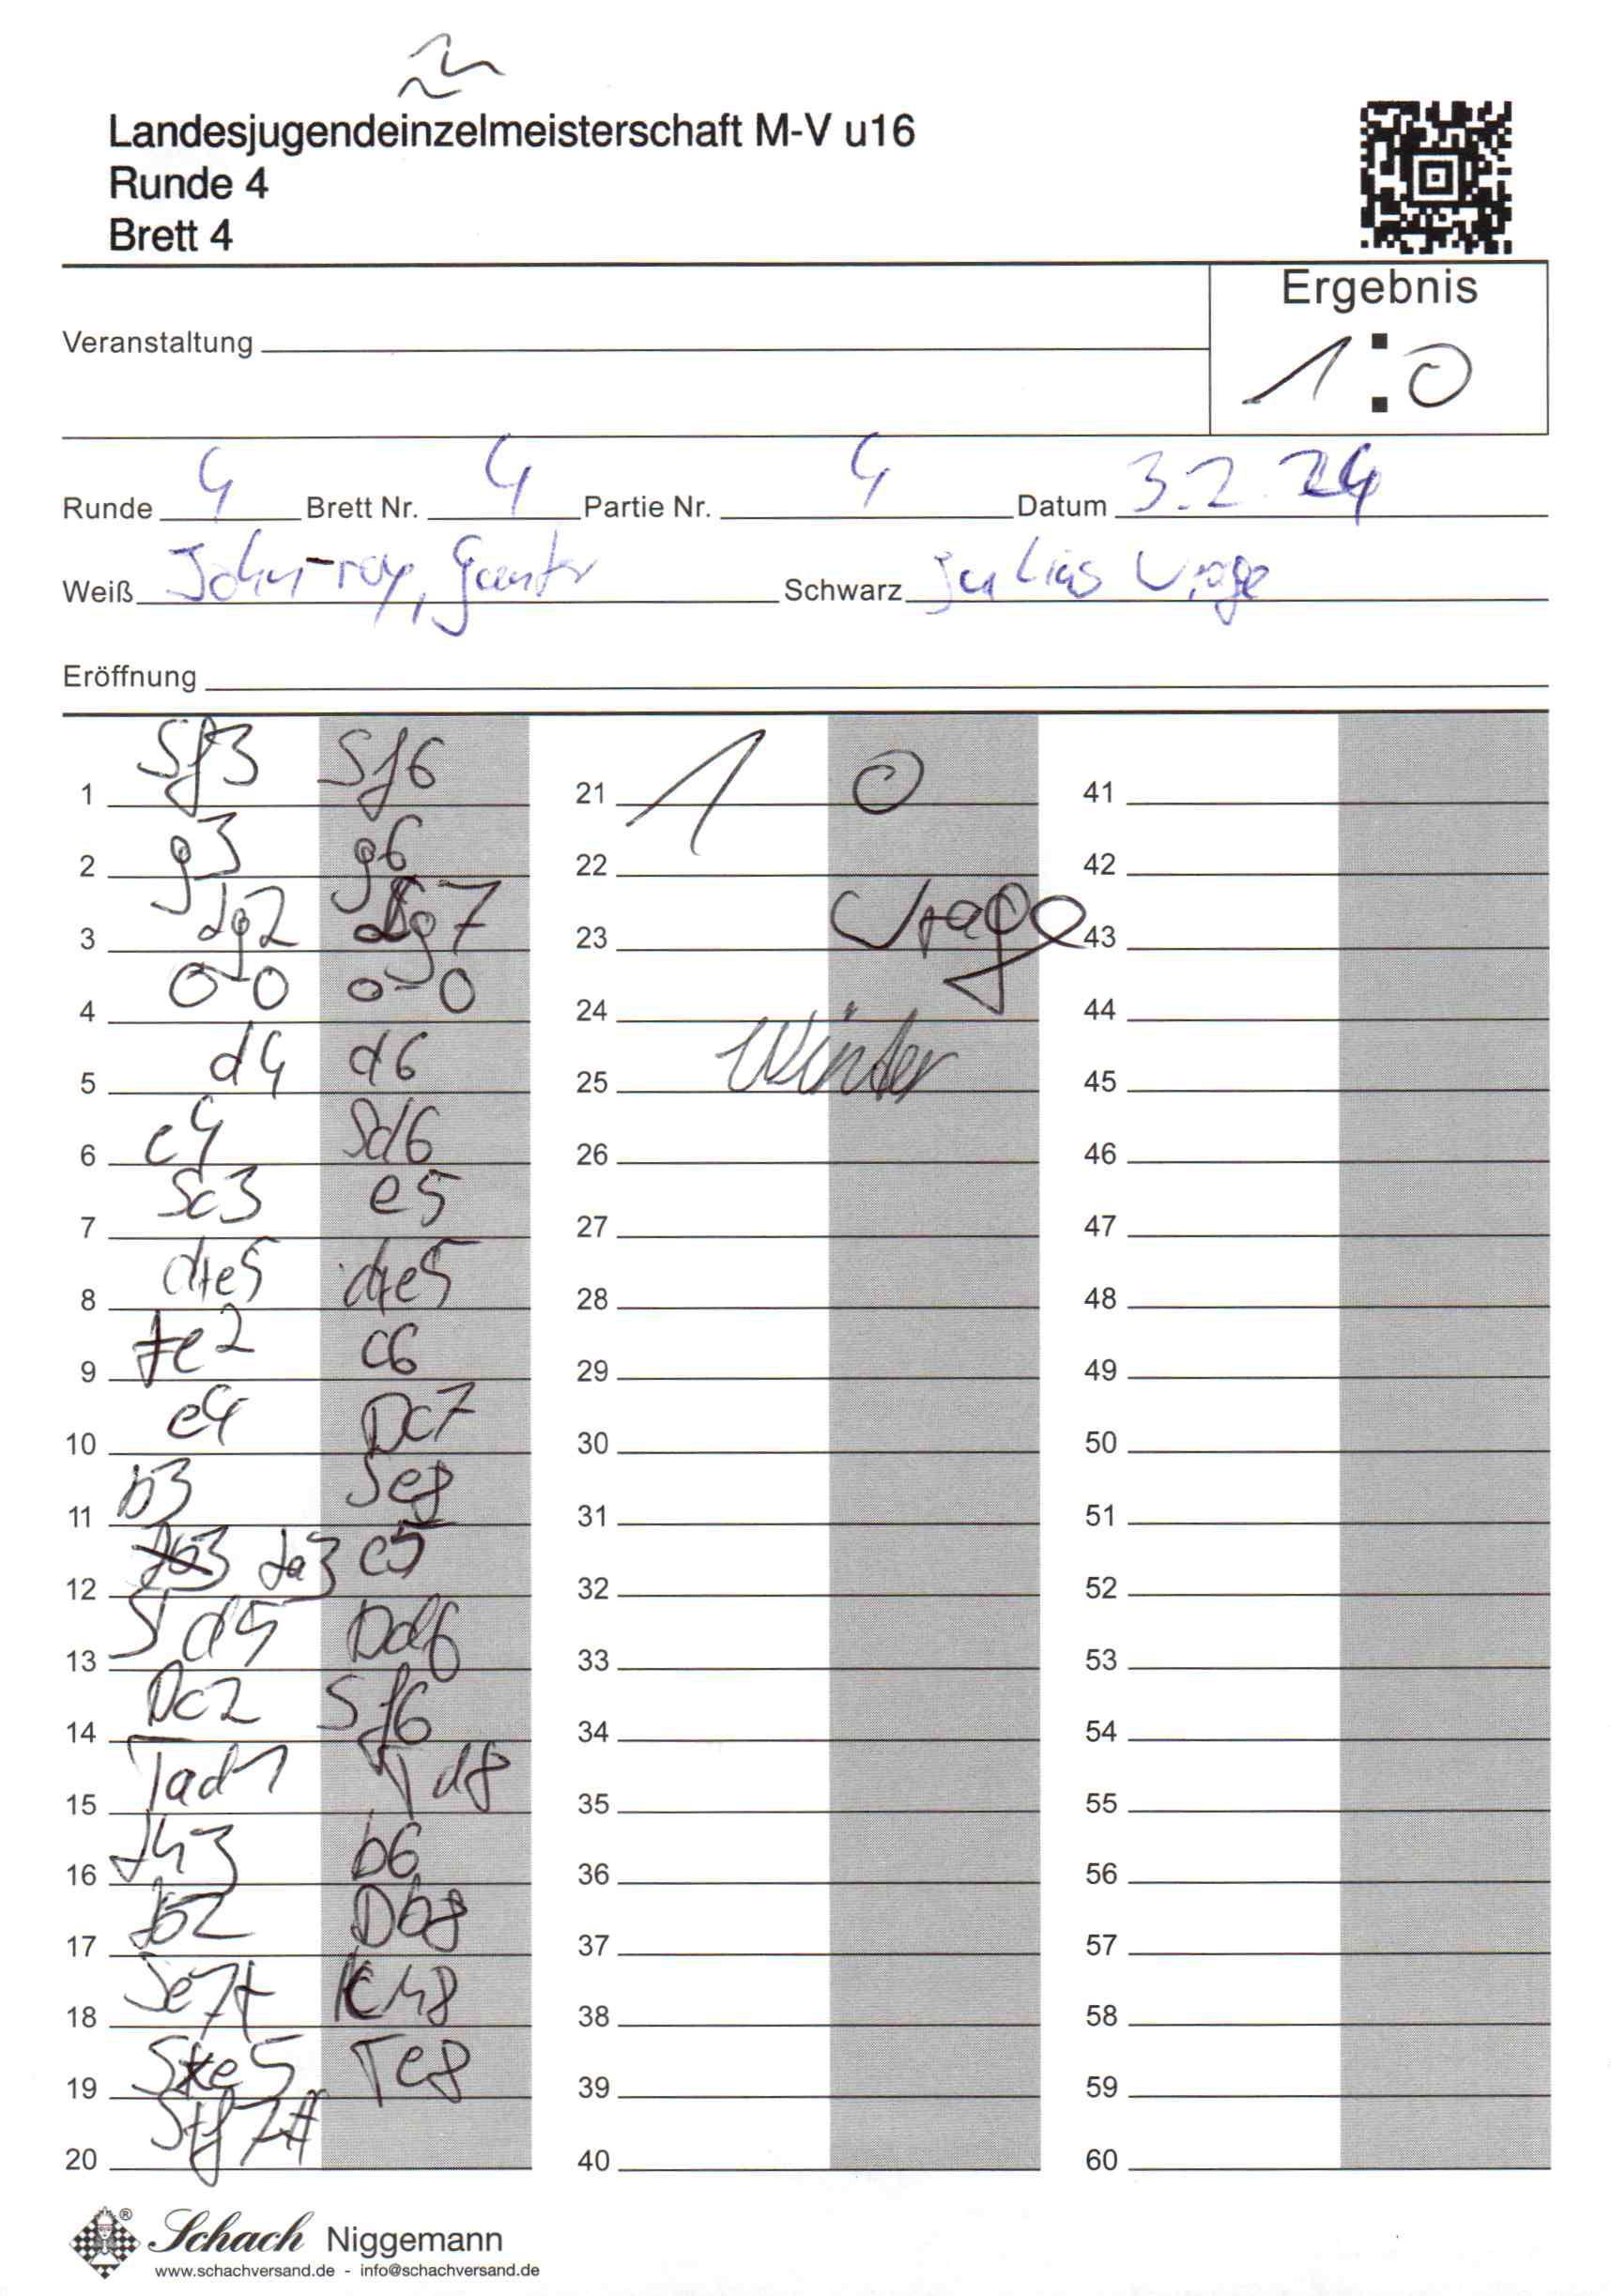 Landesjugendeinzelmeisterschaft M-V u16
Runde 4
Brett 4
Ergebnis
1:0
Veranstaltung
Runde 4 Brett Nr. 4 Partie Nr. 4 Datum 3.2.24
Weiß John-roy, Schwarz Julias
Eröffnung
1 Sf3 Sf6
2 g3 g6
3 Lg2 Lg7
4 0-0 0-0
5 d4 d6
6 c4 Sd6
7 Sc3 e5
8 dxe5 dxe5
9 e2 c6
10 e4 Dc7
11 b3 Se8
12 La3 c5
13 Sd5 Dd6
14 Dc2 Sf6
15 Tad1 Td8
16 Lh3 b6
17 Lb2 Db8
18 Se7+ Kh8
19 Sxe5 Te8
20 Sxf7#
21 1 0
22
23
24
25
26
27
28
29
30
31
32
33
34
35
36
37
38
39
40
41
42
43
44
45
46
47
48
49
50
51
52
53
54
55
56
57
58
59
60
Schach Niggemann
www.schachversand.de - info@schachversand.de